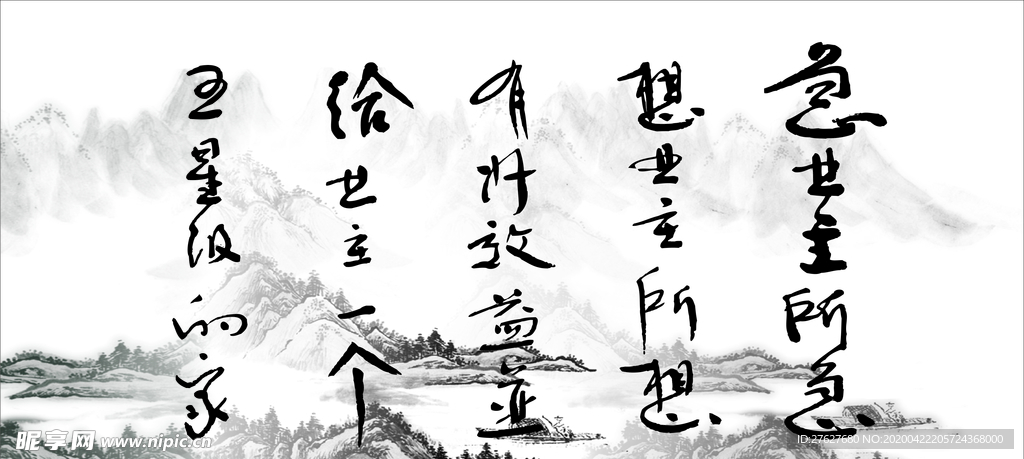 急业主所急
想业主所想
有效益並
给业主一个
五星级的家
昵享网 www.nipic.cn
ID:27627680 NO:20200422205724368000